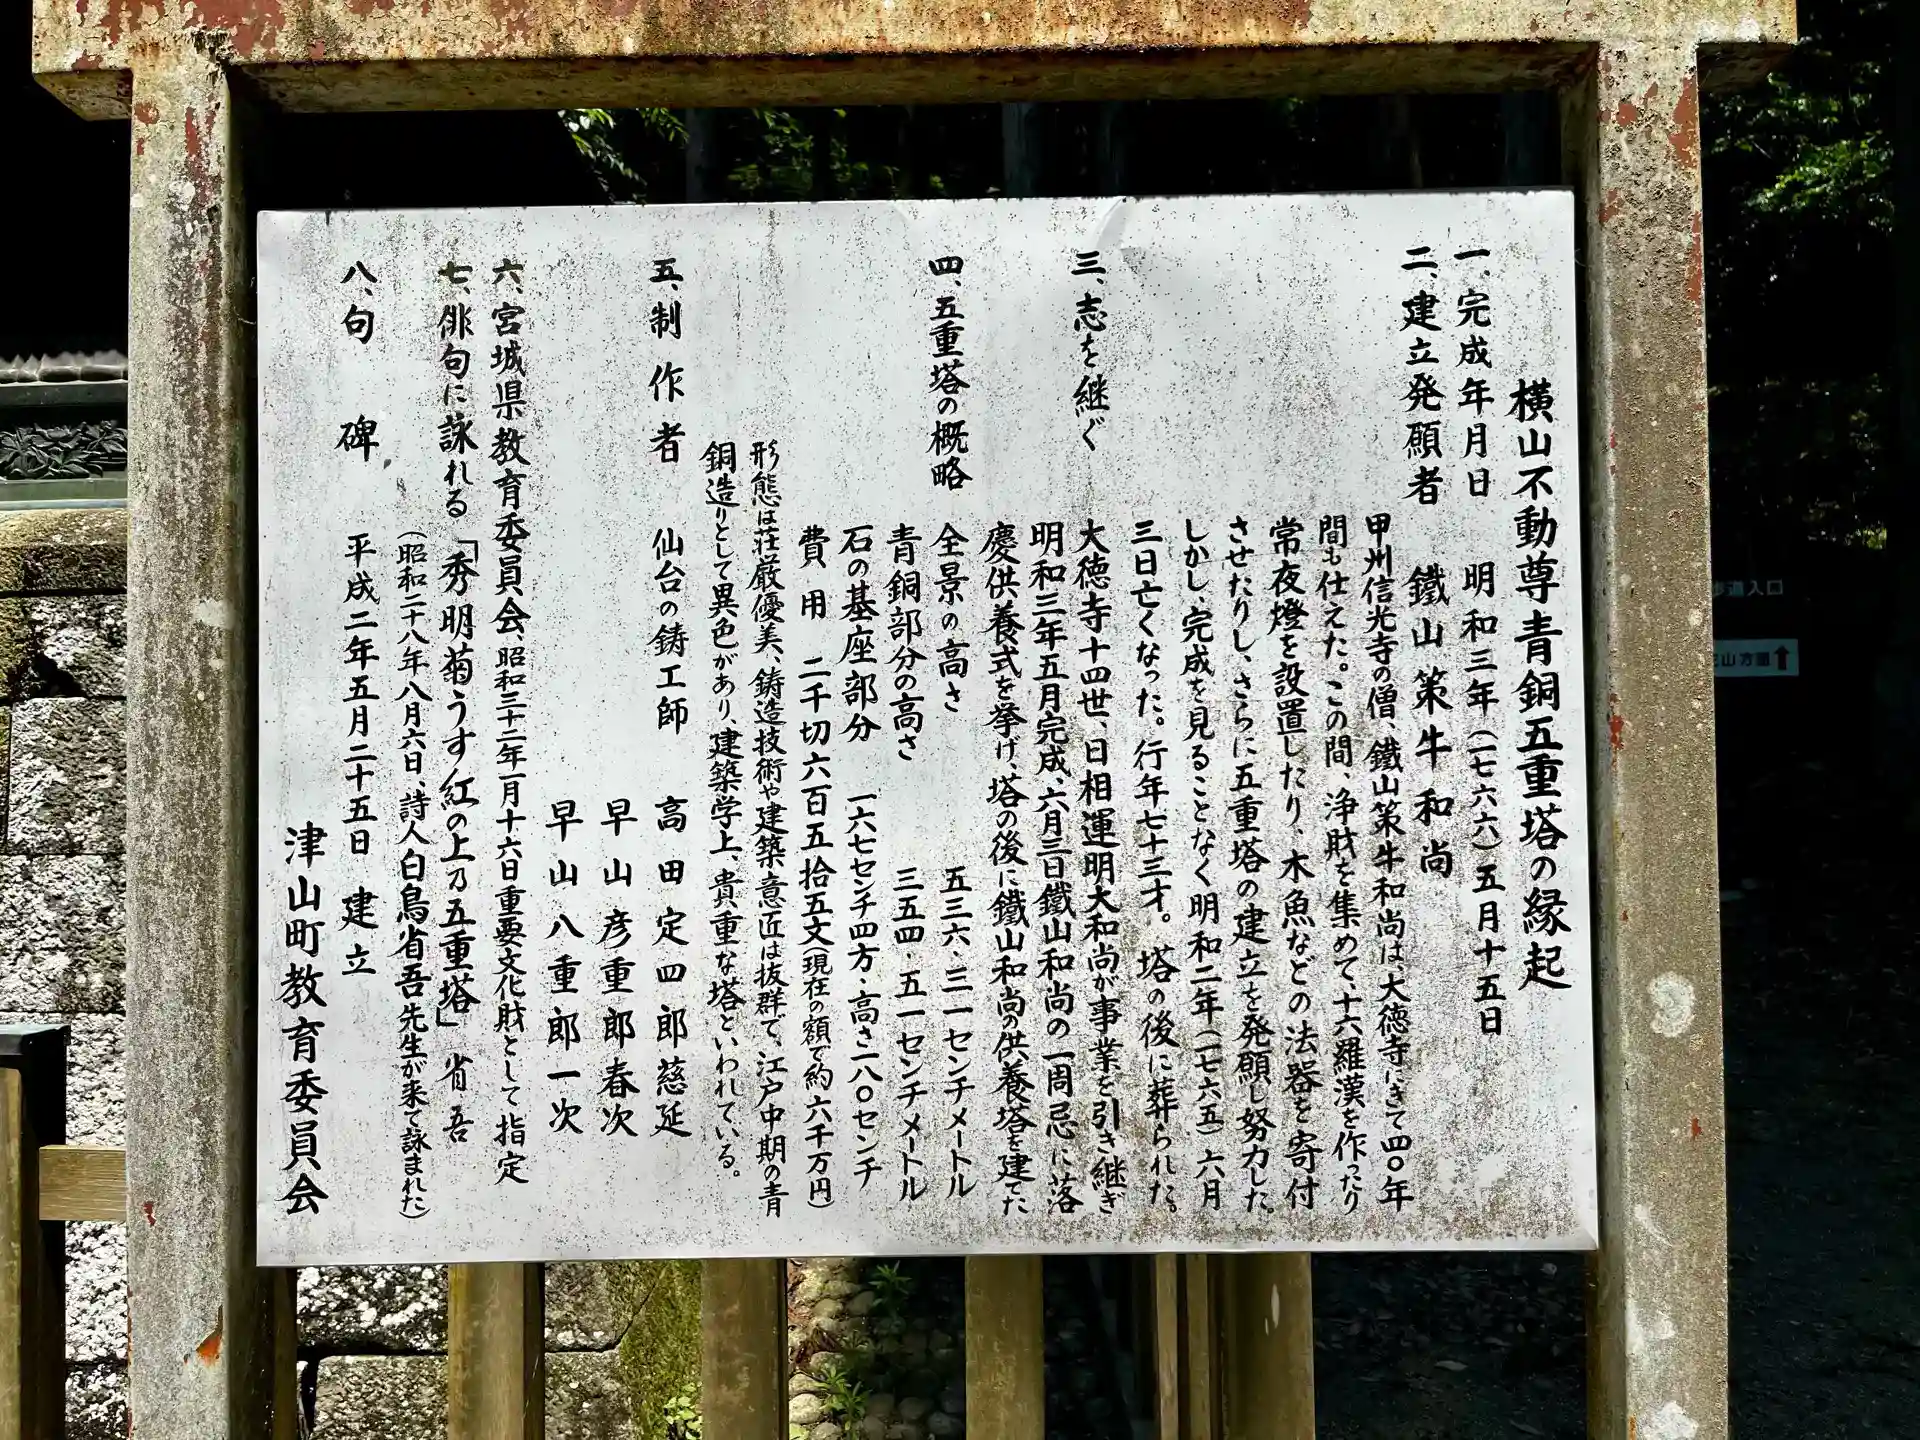 横山不動尊青銅五重塔の縁起
一、完成年月日　明和三年（一七六六）五月十五日
二、建立発願者　鐵山策牛和尚
甲州信光寺の僧、鐵山策牛和尚は、大徳寺にきて四〇年
間も仕えた。この間、浄財を集めて、十六羅漢を作ったり
常夜燈を設置したり、木魚などの法器を寄付
させたりし、さらに五重塔の建立を発願し努力した。
しかし、完成を見ることなく明和二年（一七六五）六月
三日亡くなった。行年七十三才。塔の後に葬られた。
三、志を継ぐ　大徳寺十四世、日相運明大和尚が事業を引き継ぎ
明和三年五月完成、六月三日鐵山和尚の一周忌に落
慶供養式を挙げ、塔の後に鐵山和尚の供養塔を建てた
四、五重塔の概略　全景の高さ　五三六・三一センチメートル
青銅部分の高さ　三五四・五一センチメートル
石の基座部分　一六七センチ四方・高さ一八〇センチ
費用　二千切六百五拾五文（現在の額で約六千万円）
形態は荘厳優美、鋳造技術や建築意匠は抜群で、江戸中期の青
銅造りとして異色があり、建築学上、貴重な塔といわれている。
五、制作者　仙台の鋳工師　高田定四郎慈延
早山彦重郎春次
早山八重郎一次
六、宮城県教育委員会、昭和三十二年一月十六日重要文化財として指定
七、俳句に詠れる「秀明菊うす紅の上乃五重塔」省吾
（昭和二十八年八月六日、詩人白鳥省吾先生が来て詠まれた）
八、句碑　平成二年五月二十五日　建立
津山町教育委員会
歩道入口
山方面